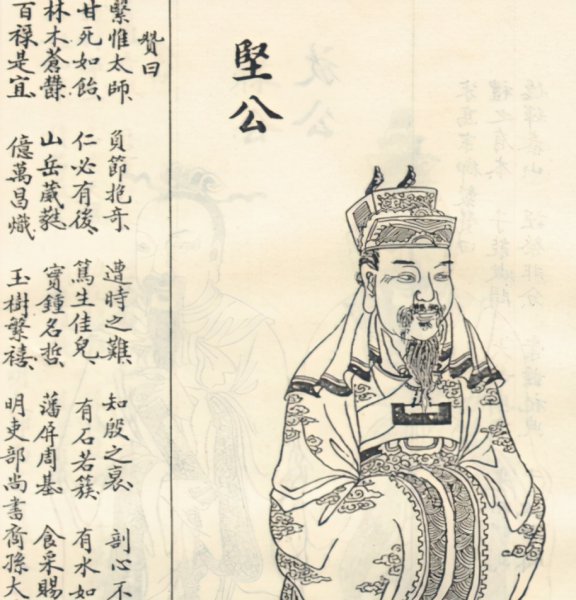 堅公
贊曰
繄惟太師、負節抱奇、遭時之難、知殷之衰、剖心不
甘死如飴、仁必有後、篤生佳兒、有石若簇、有水如
林木蒼鬱、山岳葳蕤、實鍾名哲、藩屏周基、食采賜
百祿是宜、億萬昌熾、玉樹繁禧、明吏部尚書裔孫大